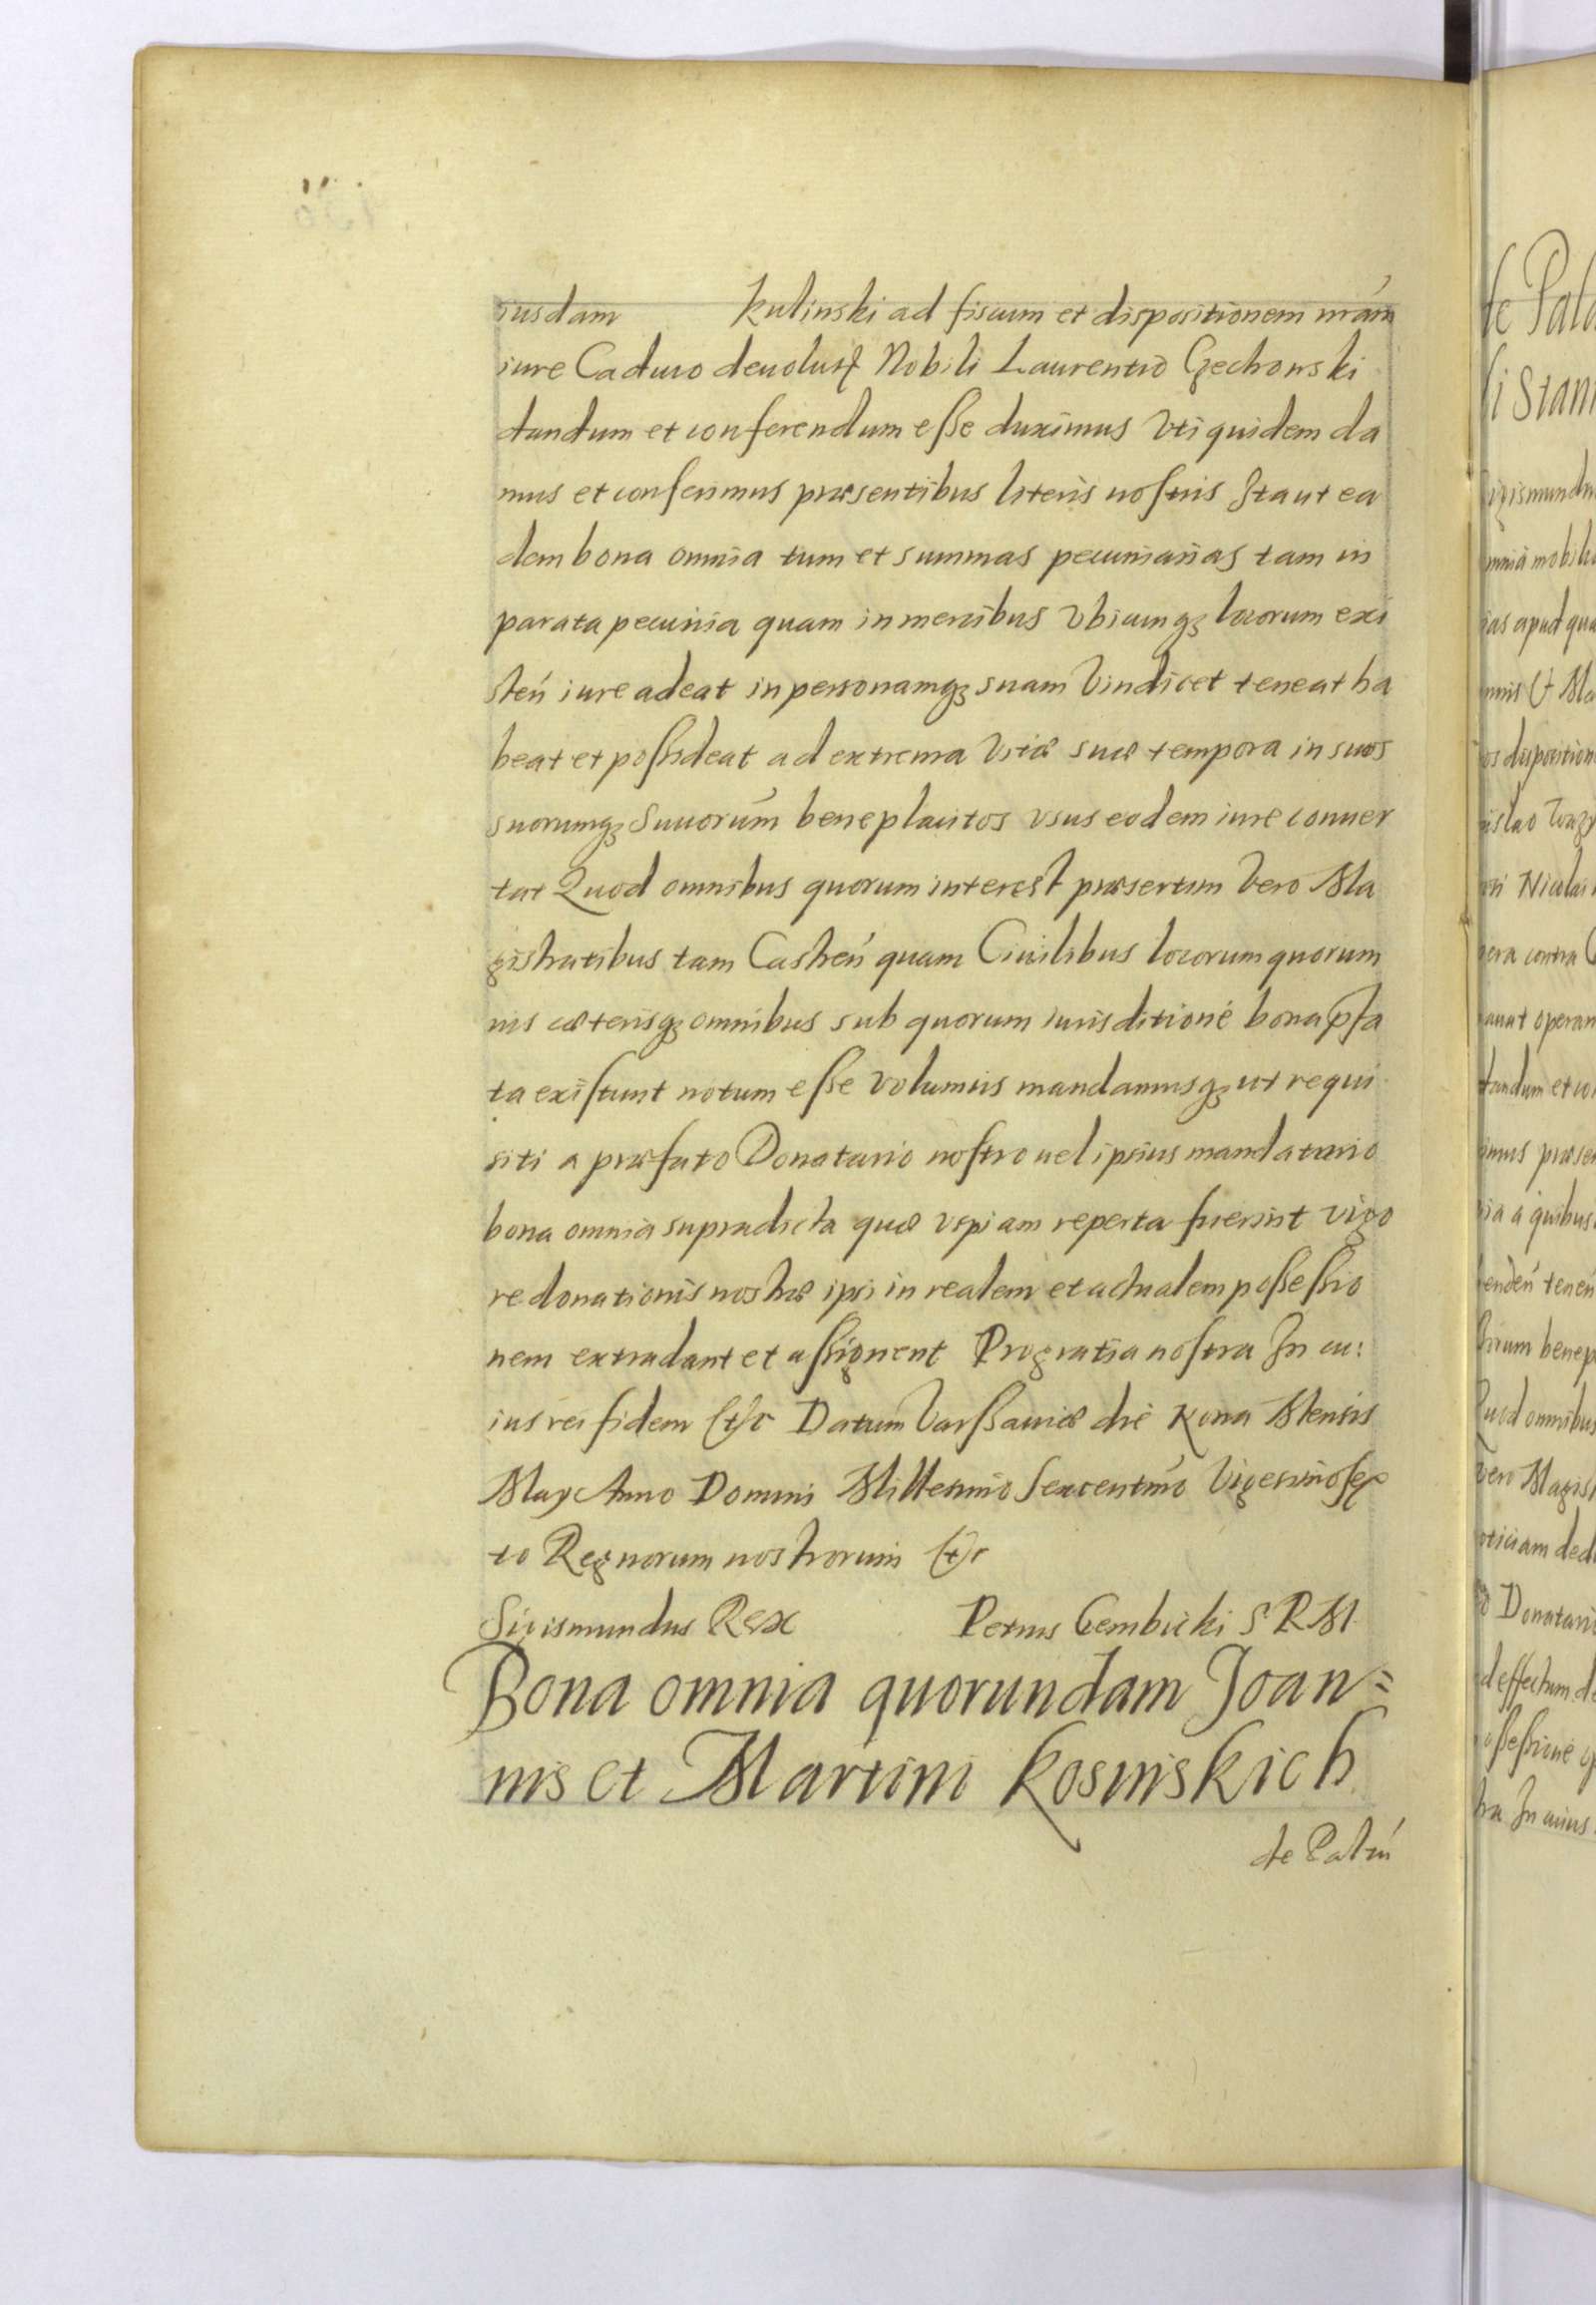 iusdam Kulinski ad fiscum et dispositionem nrám
iure Caduco deuolut Nobili Laurentio Czechonski
dandum et conferendum eße duximus Vti quidem da
mus et conferimus præsentibus literis nostris Ita ut ea
dem bona omnia tum et summas pecuniarias tam in
parata pecunia quam in mercibus Vbicunqȝ locorum exi
steń iure adeat in personamqȝ suam Vindicet teneat ha
beat et poßideat ad extrema Vitæ suæ tempora in suos
suorumqȝ Succorúm beneplacitos vsus eodem iure conuer
tat Quod omnibus quorum interest præsertim Vero Ma
gistratibus tam Castreń quam Ciuilibus locorum quorum
uis cæterisqȝ omnibus sub quorum iurisditione bona pfa
ta existunt notum eße volumus mandamusqȝ ut requi
siti a præfato Donatario nostro uel ipsius mandatario
bona omnia supradicta quæ vspiam reperta fuerint vigo
re donationis nostræ ipsi in realem et actualem poßeßio
nem extradant et aßignent Pro gratia nostra In cu:
ius rei fidem &c Datum Varßauiæ die Nona Mensis
May Anno Domini Millesimo Sexcentmo Vigesimo sex
to Regnorum nostrorum &c
Sigismundus Rex Petrus Gembicki S R M
Bona omnia quorundam Joan=
nis et Martini Kosinskich
de Patń
de Pala
li Stani
mnia mobili
ias apud qua
nnis & Ma
os disposition
ri Nicolai
era contra
nauat operam
dandum et co
imus præsen
ia a quibus
irum benep
Quod omnibus
Vero Magist
oticiam dedu
o Donatari
d effectum de
oßeßione
tra In cuius